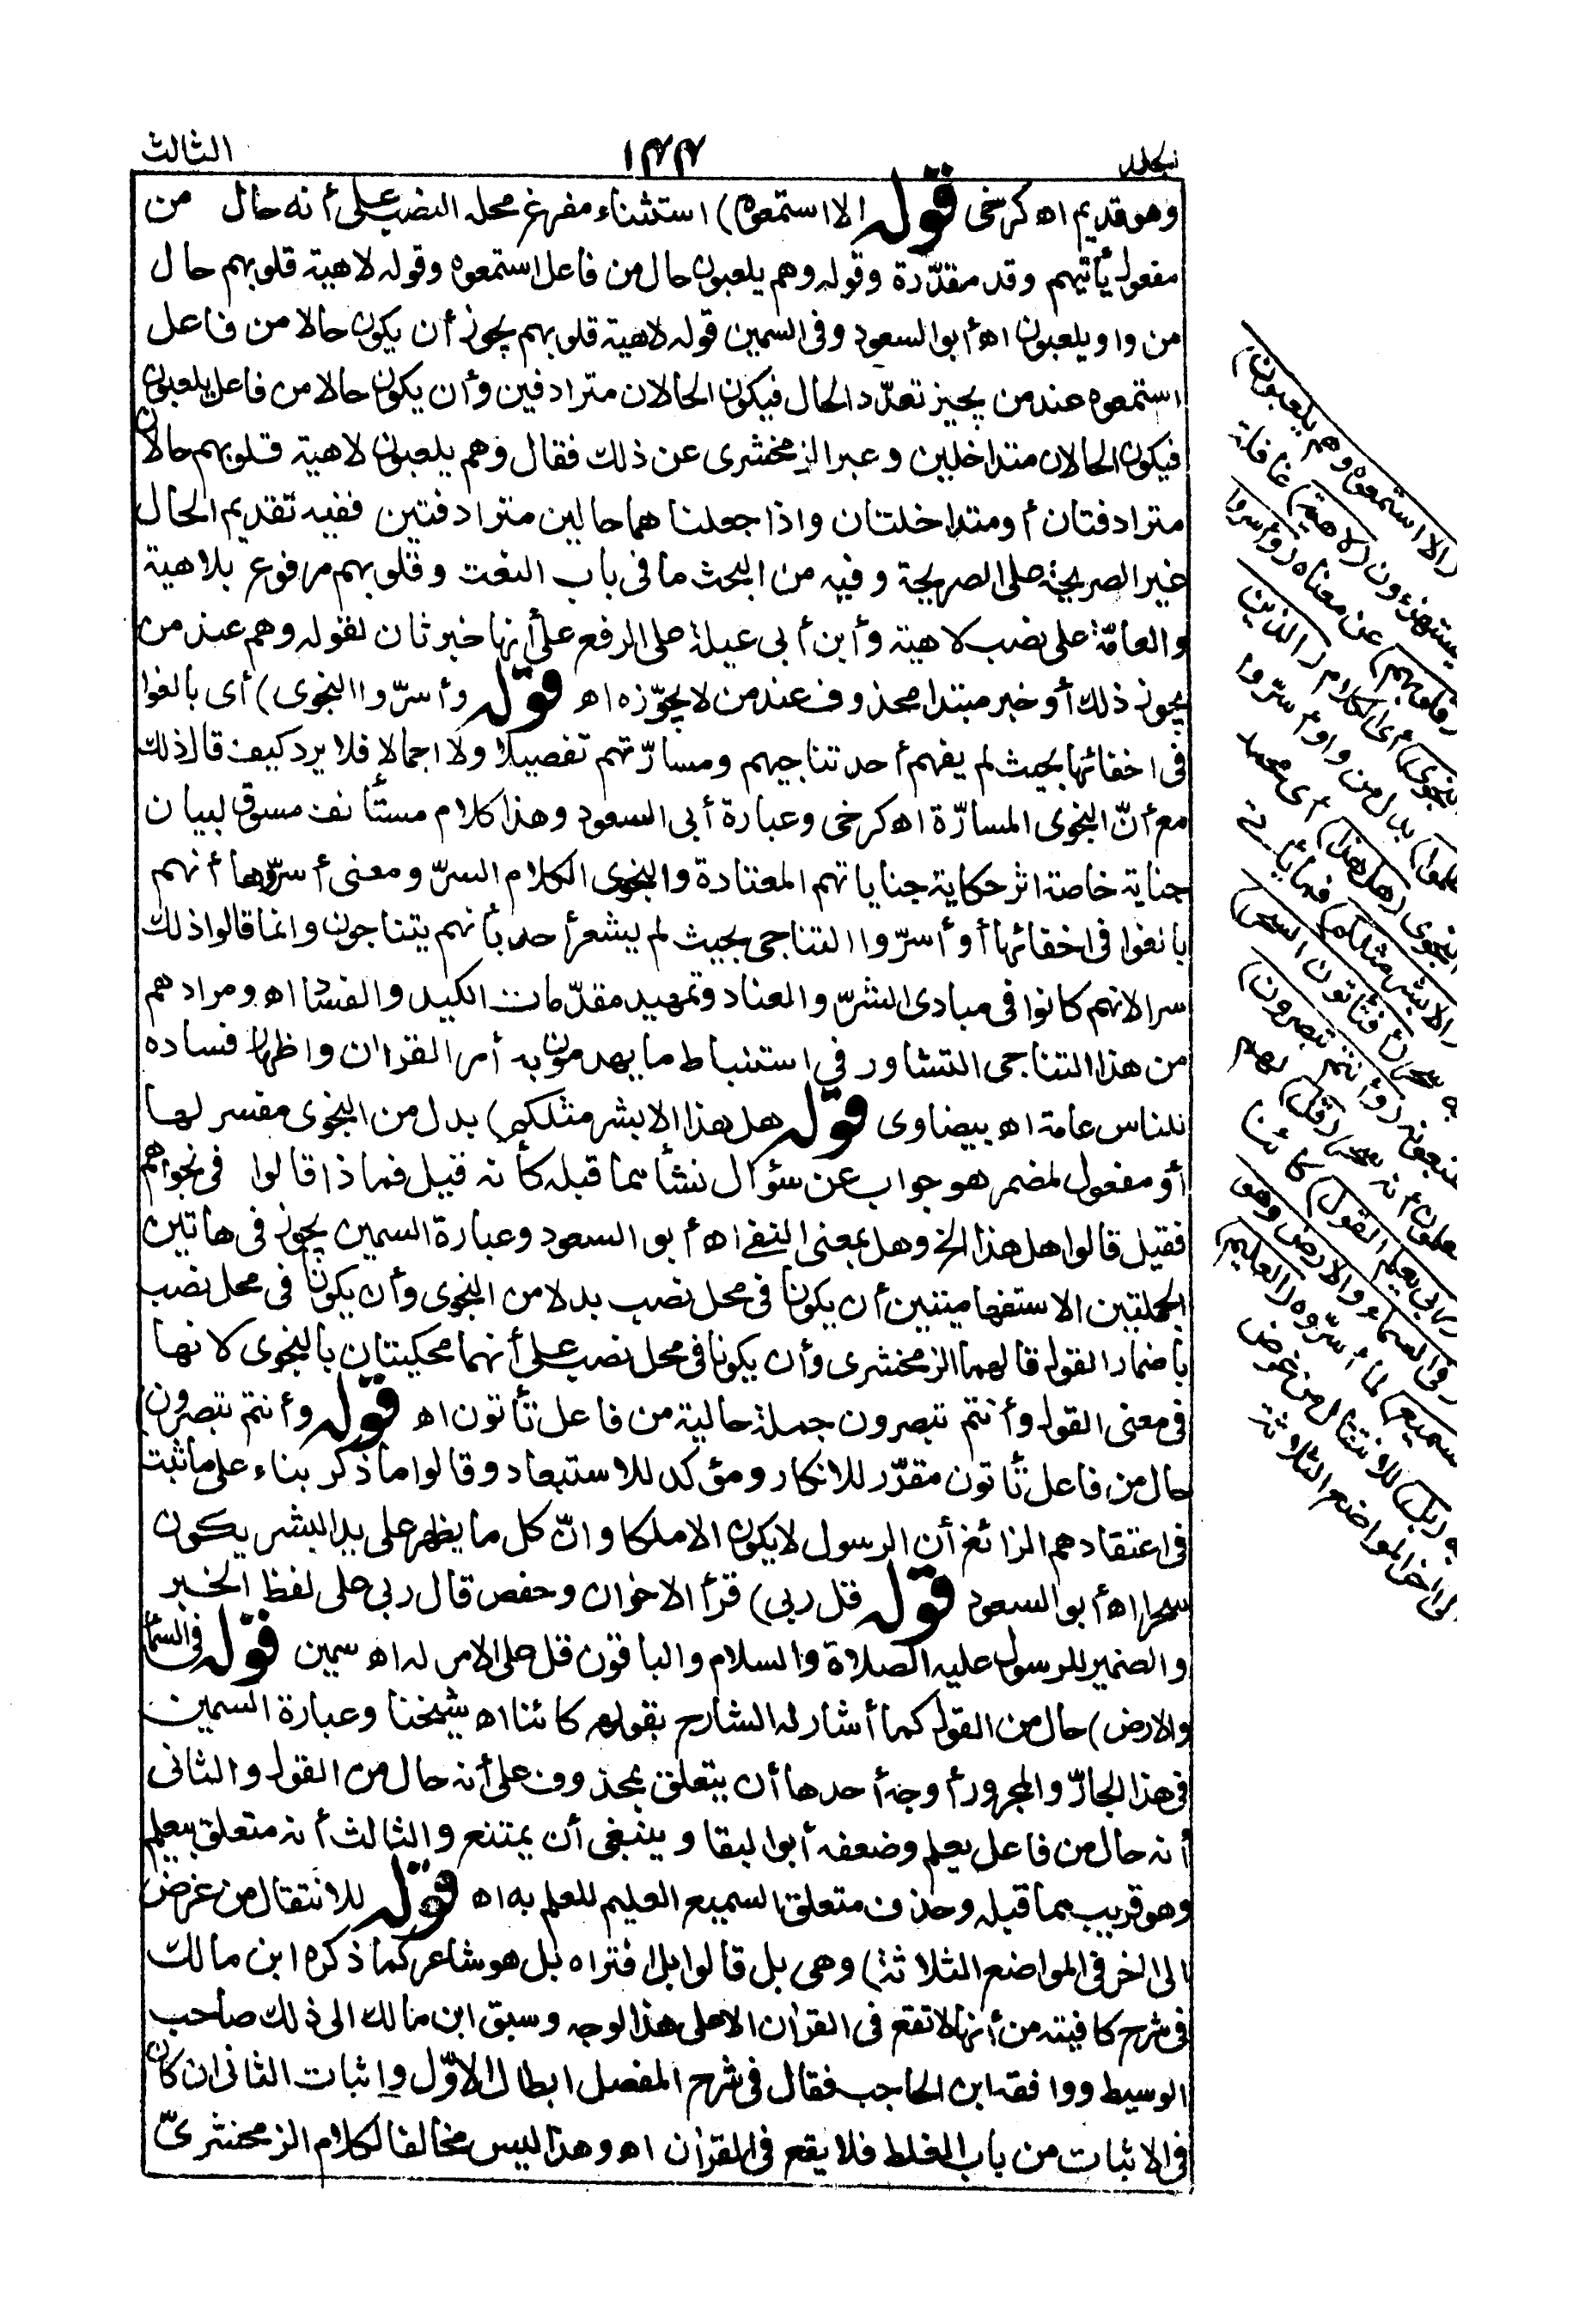 المجلد ١٢٢ الثالث
وهو قديم اه كرخى قوله الا استمعوه) استثناء مفرغ محله النصب على أنه حال من
مفعول يأتيهم وقد مقدّرة وقوله وهم يلعبون حال من فاعل استمعوه وقوله لاهية قلوبهم حال
من واو يلعبون اه أبو السعود وفى السمين قوله لاهية قلوبهم يجوز أن يكون حالا من فاعل
استمعوه عند من يجيز تعدّد الحال فيكون الحالان مترادفين وأن يكون حالا من فاعل يلعبون
فيكون الحالان متداخلين وعبر الزمخشرى عن ذلك فقال وهم يلعبون لاهية قلوبهم حالان
مترادفتان أو متداخلتان واذا جعلناهما حالين مترادفتين ففيه تقديم الحال
غير الصريحة على الصريحة وفيه من البحث ما فى باب النعت وقلوبهم مرفوع بلاهية
والعامّة على نصب لاهية وأبن أبى عبلة على الرفع على أنها خبر ثان لقوله وهم عند من
يجوز ذلك أو خبر مبتدا محذوف عند من لا يجوّزه اه قوله وأسرّوا النجوى) أى بالغوا
فى اخفائها بحيث لم يفهم أحد تناجيهم ومسارّتهم تفصيلا ولا اجمالا فلا يرد كيف قال ذلك
مع أنّ النجوى المسارّة اه كرخى وعبارة أبى السعود وهذا كلام مستأنف مسوق لبيان
جناية خاصة اثر حكاية جناياتهم المعتادة والنجوى الكلام السرّ ومعنى أسرّوها أنهم
بالغوا فى اخفائها أو أسرّوا التناجى بحيث لم يشعر أحد بأنهم يتناجون وانما قالوا ذلك
سرا لانهم كانوا فى مبادى الشرّ والعناد وتمهيد مقدّمات الكيد والفساد اه ومرادهم
من هذا التناجى التشاور فى استنباط ما يهدمون به أمر القرآن واظهار فساده
للناس عامة اه بيضاوى قوله هل هذا الا بشر مثلكم) بدل من النجوى مفسر لها
أو مفعول لمضمر هو جواب عن سؤال نشأ مما قبله كأنه قيل فماذا قالوا فى نجواهم
فقيل قالوا هل هذا الخ وهل بمعنى النفى اه أبو السعود وعبارة السمين يجوز فى هاتين
الجملتين الاستفهاميتين أن يكونا فى محل نصب بدلا من النجوى وأن يكونا فى محل نصب
باضمار القول قالهما الزمخشرى وأن يكونا فى محل نصب على أنهما محكيتان بالنجوى لانها
فى معنى القول وأنتم تبصرون جملة حالية من فاعل تأتون اه قوله وأنتم تبصرون)
حال من فاعل تأتون مقدّر للانكار ومؤكد للاستبعاد وقالوا ما ذكر بناء على ما ثبت
فى اعتقادهم الزائغ أن الرسول لا يكون الا ملكا وانّ كل ما يظهر على يد البشر يكون
سحرا اه أبو السعود قوله قل ربى) قرأ الاخوان وحفص قال ربى على لفظ الخبر
والضمير للرسول عليه الصلاة والسلام والباقون قل على الامر له اه سمين قوله فى السماء
والارض) حال من القول كما أشار له الشارح بقوله كائنا اه شيخنا وعبارة السمين
فى هذا الجارّ والمجرور أوجه أحدها أن يتعلق بمحذوف على أنه حال من القول والثانى
أنه حال من فاعل يعلم وضعفه أبو البقا وينبغى أن يمتنع والثالث أنه متعلق بيعلم
وهو قريب مما قبله وحذف متعلق السميع العليم للعلم به اه قوله للانتقال من غرض
الى اخر فى المواضع الثلاثة) وهى بل قالوا بل افتراه بل هو شاعر كما ذكره ابن مالك
فى شرح كافيته من أنها لا تقع فى القران الا على هذا الوجه وسبق ابن مالك الى ذلك صاحب
الوسيط ووافقه ابن الحاجب فقال فى شرح المفصل ابطال الاوّل واثبات الثانى ان كان
فى الاثبات من باب الغلط فلا يقع فى القران اه وهذا ليس مخالفا لكلام الزمخشرىّ
(الا استمعوه وهم يلعبون)
يستهزءون (لاهية) غافلة
(قلوبهم) عن معناه (وأسروا
النجوى) أى الكلام (الذين
ظلموا) بدل من واو وأسرّوا
النجوى (هل هذا) أى محمد
(الا بشر مثلكم) فما يأتى
به سحر (أفتأتون السحر)
تتبعونه (وأنتم تبصرون)
تعلمون أنه سحر (قل) لهم
(ربى يعلم القول) كائنا
(فى السماء والارض وهو
السميع) لما أسرّوه (العليم)
به (بل) للانتقال من غرض
الى اخر فى المواضع الثلاثة